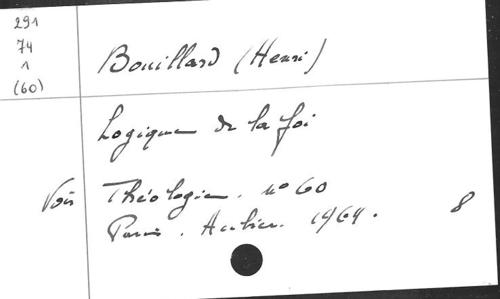 291
74
1
(60)
Bouillard (Henri)
Logique de la foi
Voir Théologie. n° 60
Paris. Aubier. 1964.
8